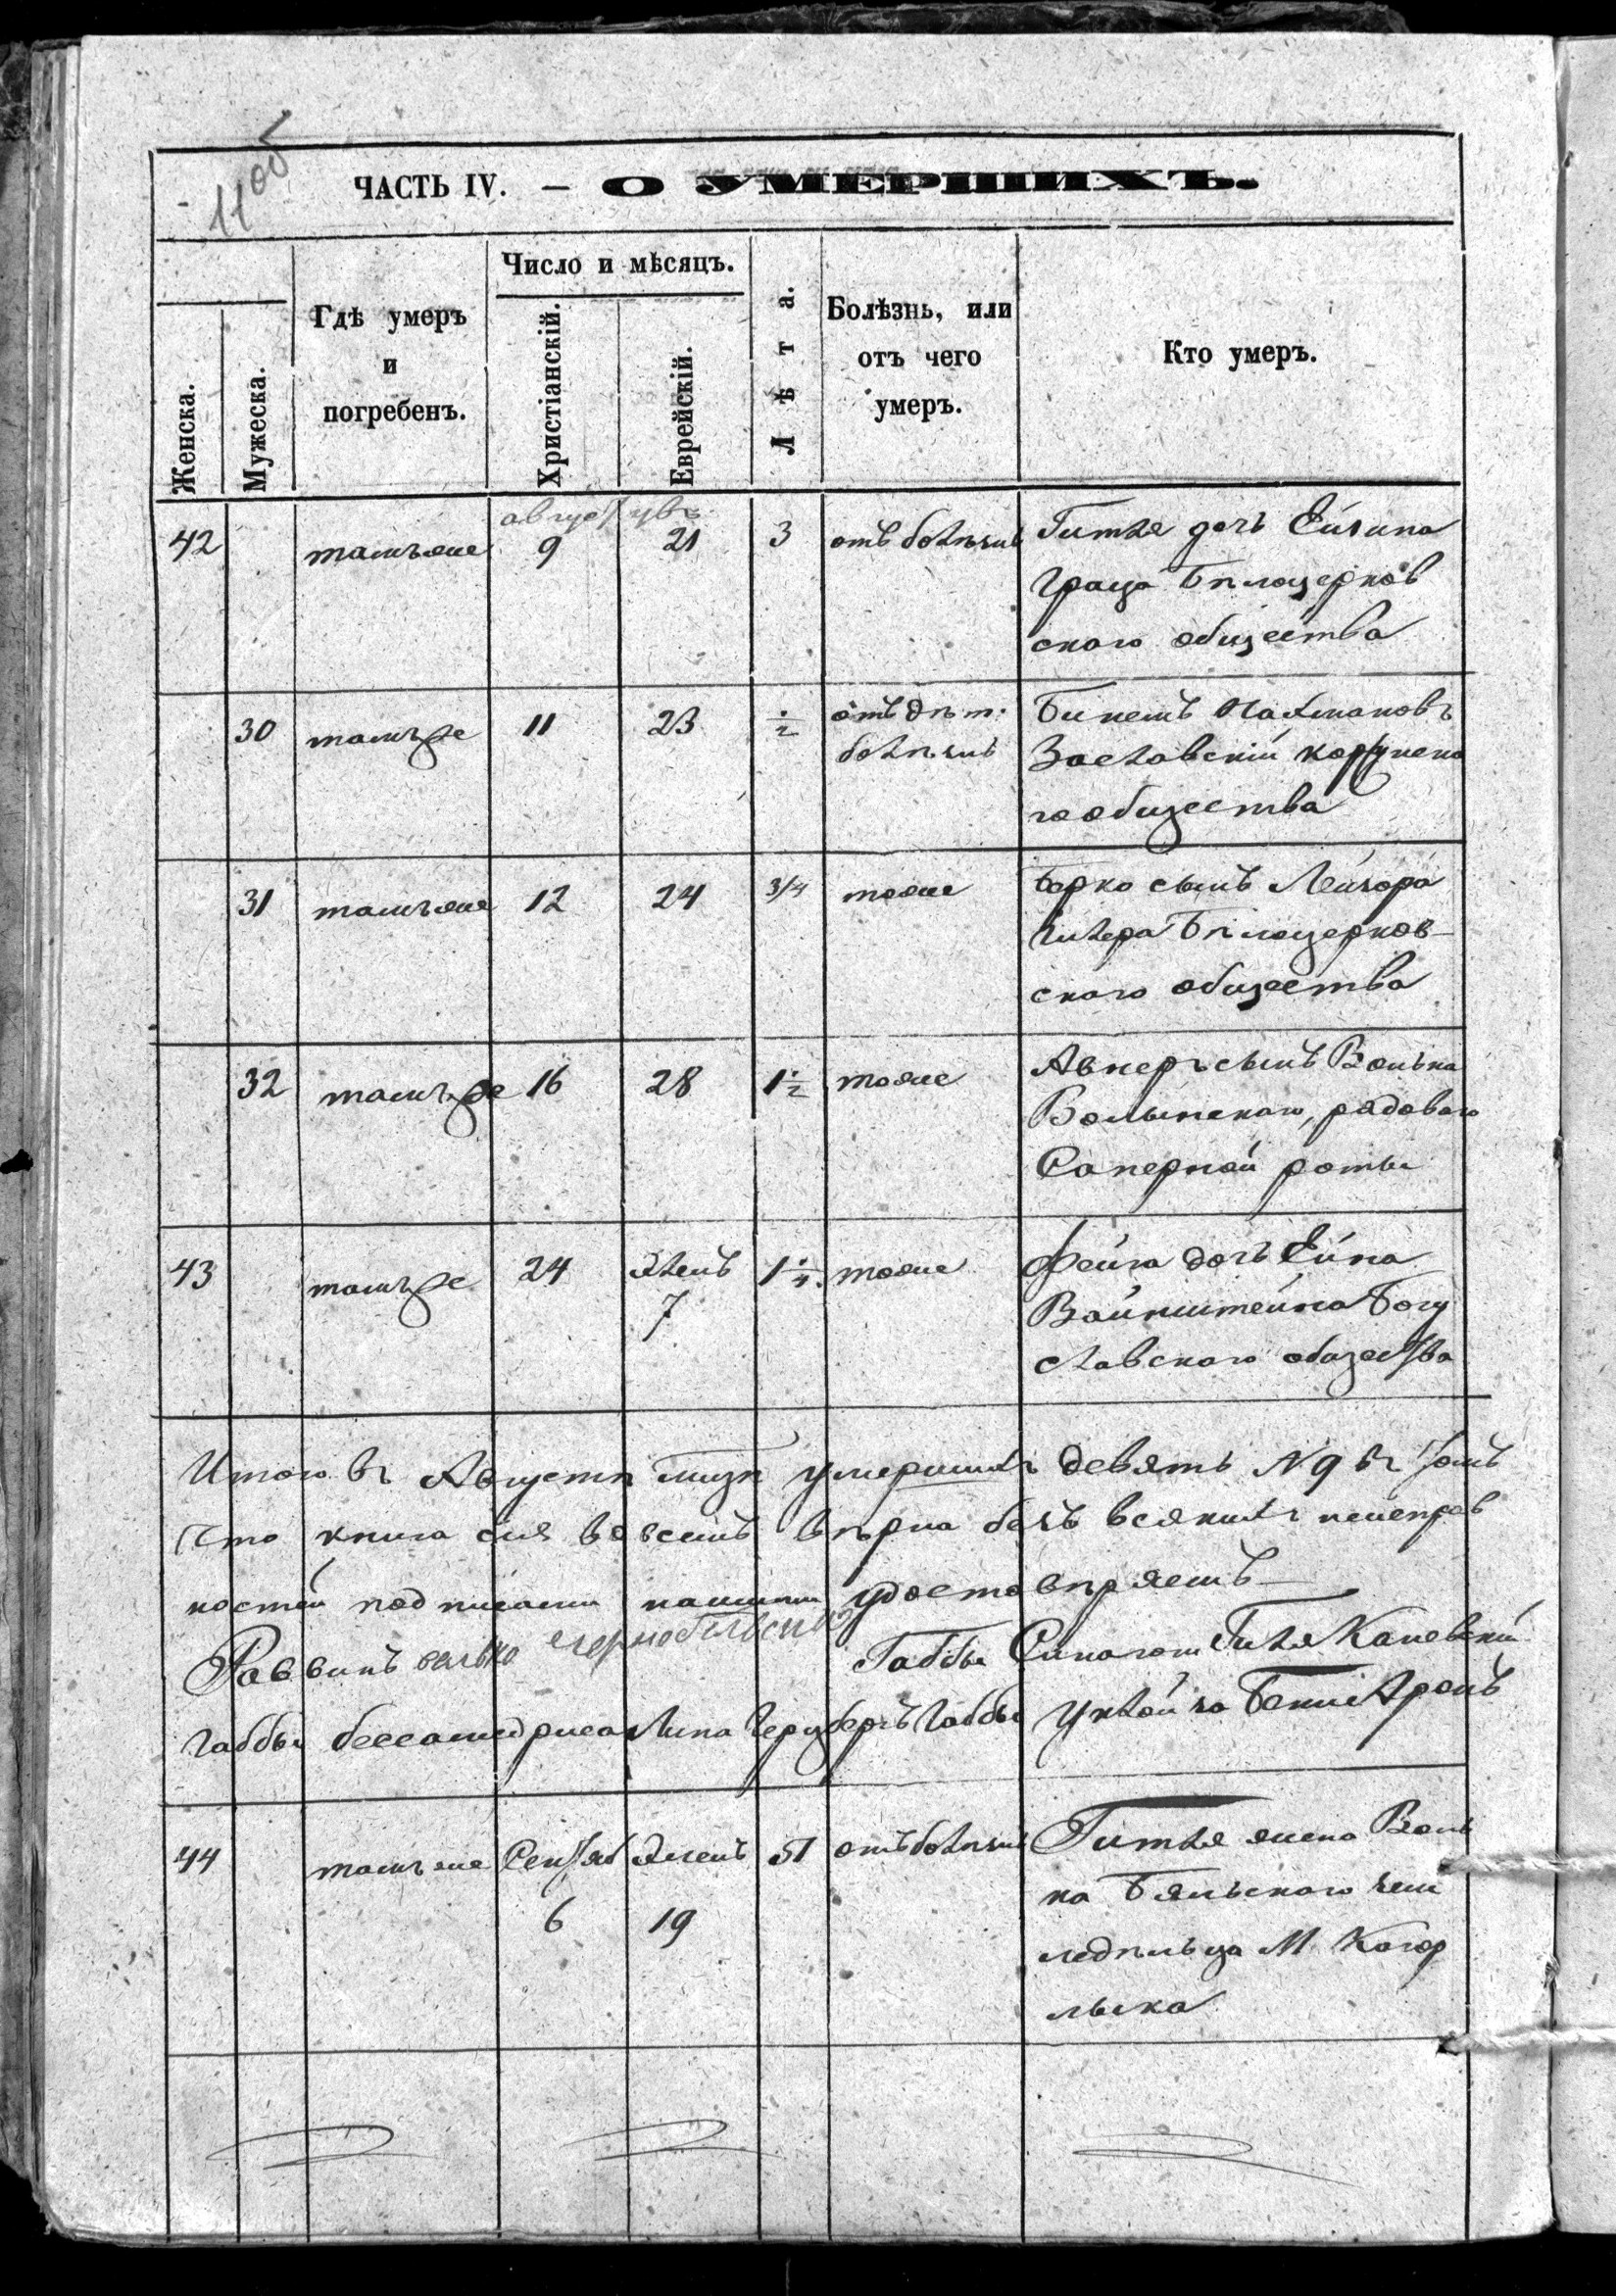 11об
ЧАСТЬ IV. — О УМЕРШИХЪ.
Женска.
Мужеска.
Гдѣ умеръ
и
погребенъ.
Число и мѣсяцъ.
Христіанскій.
Еврейскій.
Лѣта.
Болѣзнь, или
отъ чего
умеръ.
Кто умеръ.
август
42 тамъже 9 21 3 отъ болѣзни Гитля дочь
Бѣлоцерков
ского общества
30 тамъже 11 23 1/2 отъ дѣт.
болѣзни
Заславскій
го общества
31 тамъже 12 24 3/4 тоже Берко сынъ Лейзора
Бѣлоцерков-
ского общества
32 тамъже 16 28 1 1/2 тоже Авнеръ сынъ Волька
Волынскаго, рядоваго
Саперной роты
43 тамъже 24 Элень 7 1 1/4. тоже Фейга дочь
Вайнштейна Богу
славского общества
Итого въ Августѣ мцѣ умершихъ девять №9 въ томъ
что книга сія во всемъ вѣрна безъ всякихъ неисправ
ностей подписами нашими удостовѣряемъ
Раввинъ Габбы Синагоги Гиля Каневскій
Габбы
44 тамъже Сентяб 6 Элень 19 51 отъ болѣзни Гитля жена Воль
ка Бяльского зем
ледѣльца М. Кагар
лыка